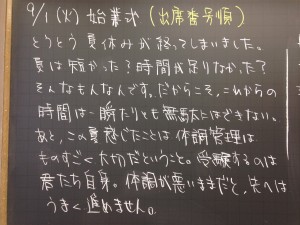 9/1(火) 始業式 (出席番号順)
とうとう夏休みが終ってしまいました。
夏は短かった?時間が足りなかった?
そんなもんなんです。だからこそ、これからの
時間は一瞬たりとも無駄にはできない。
あと、この夏感じたことは体調管理は
ものすごく大切だということ。受験するのは
君たち自身。体調が悪いままだと、先へは
うまく進めません。